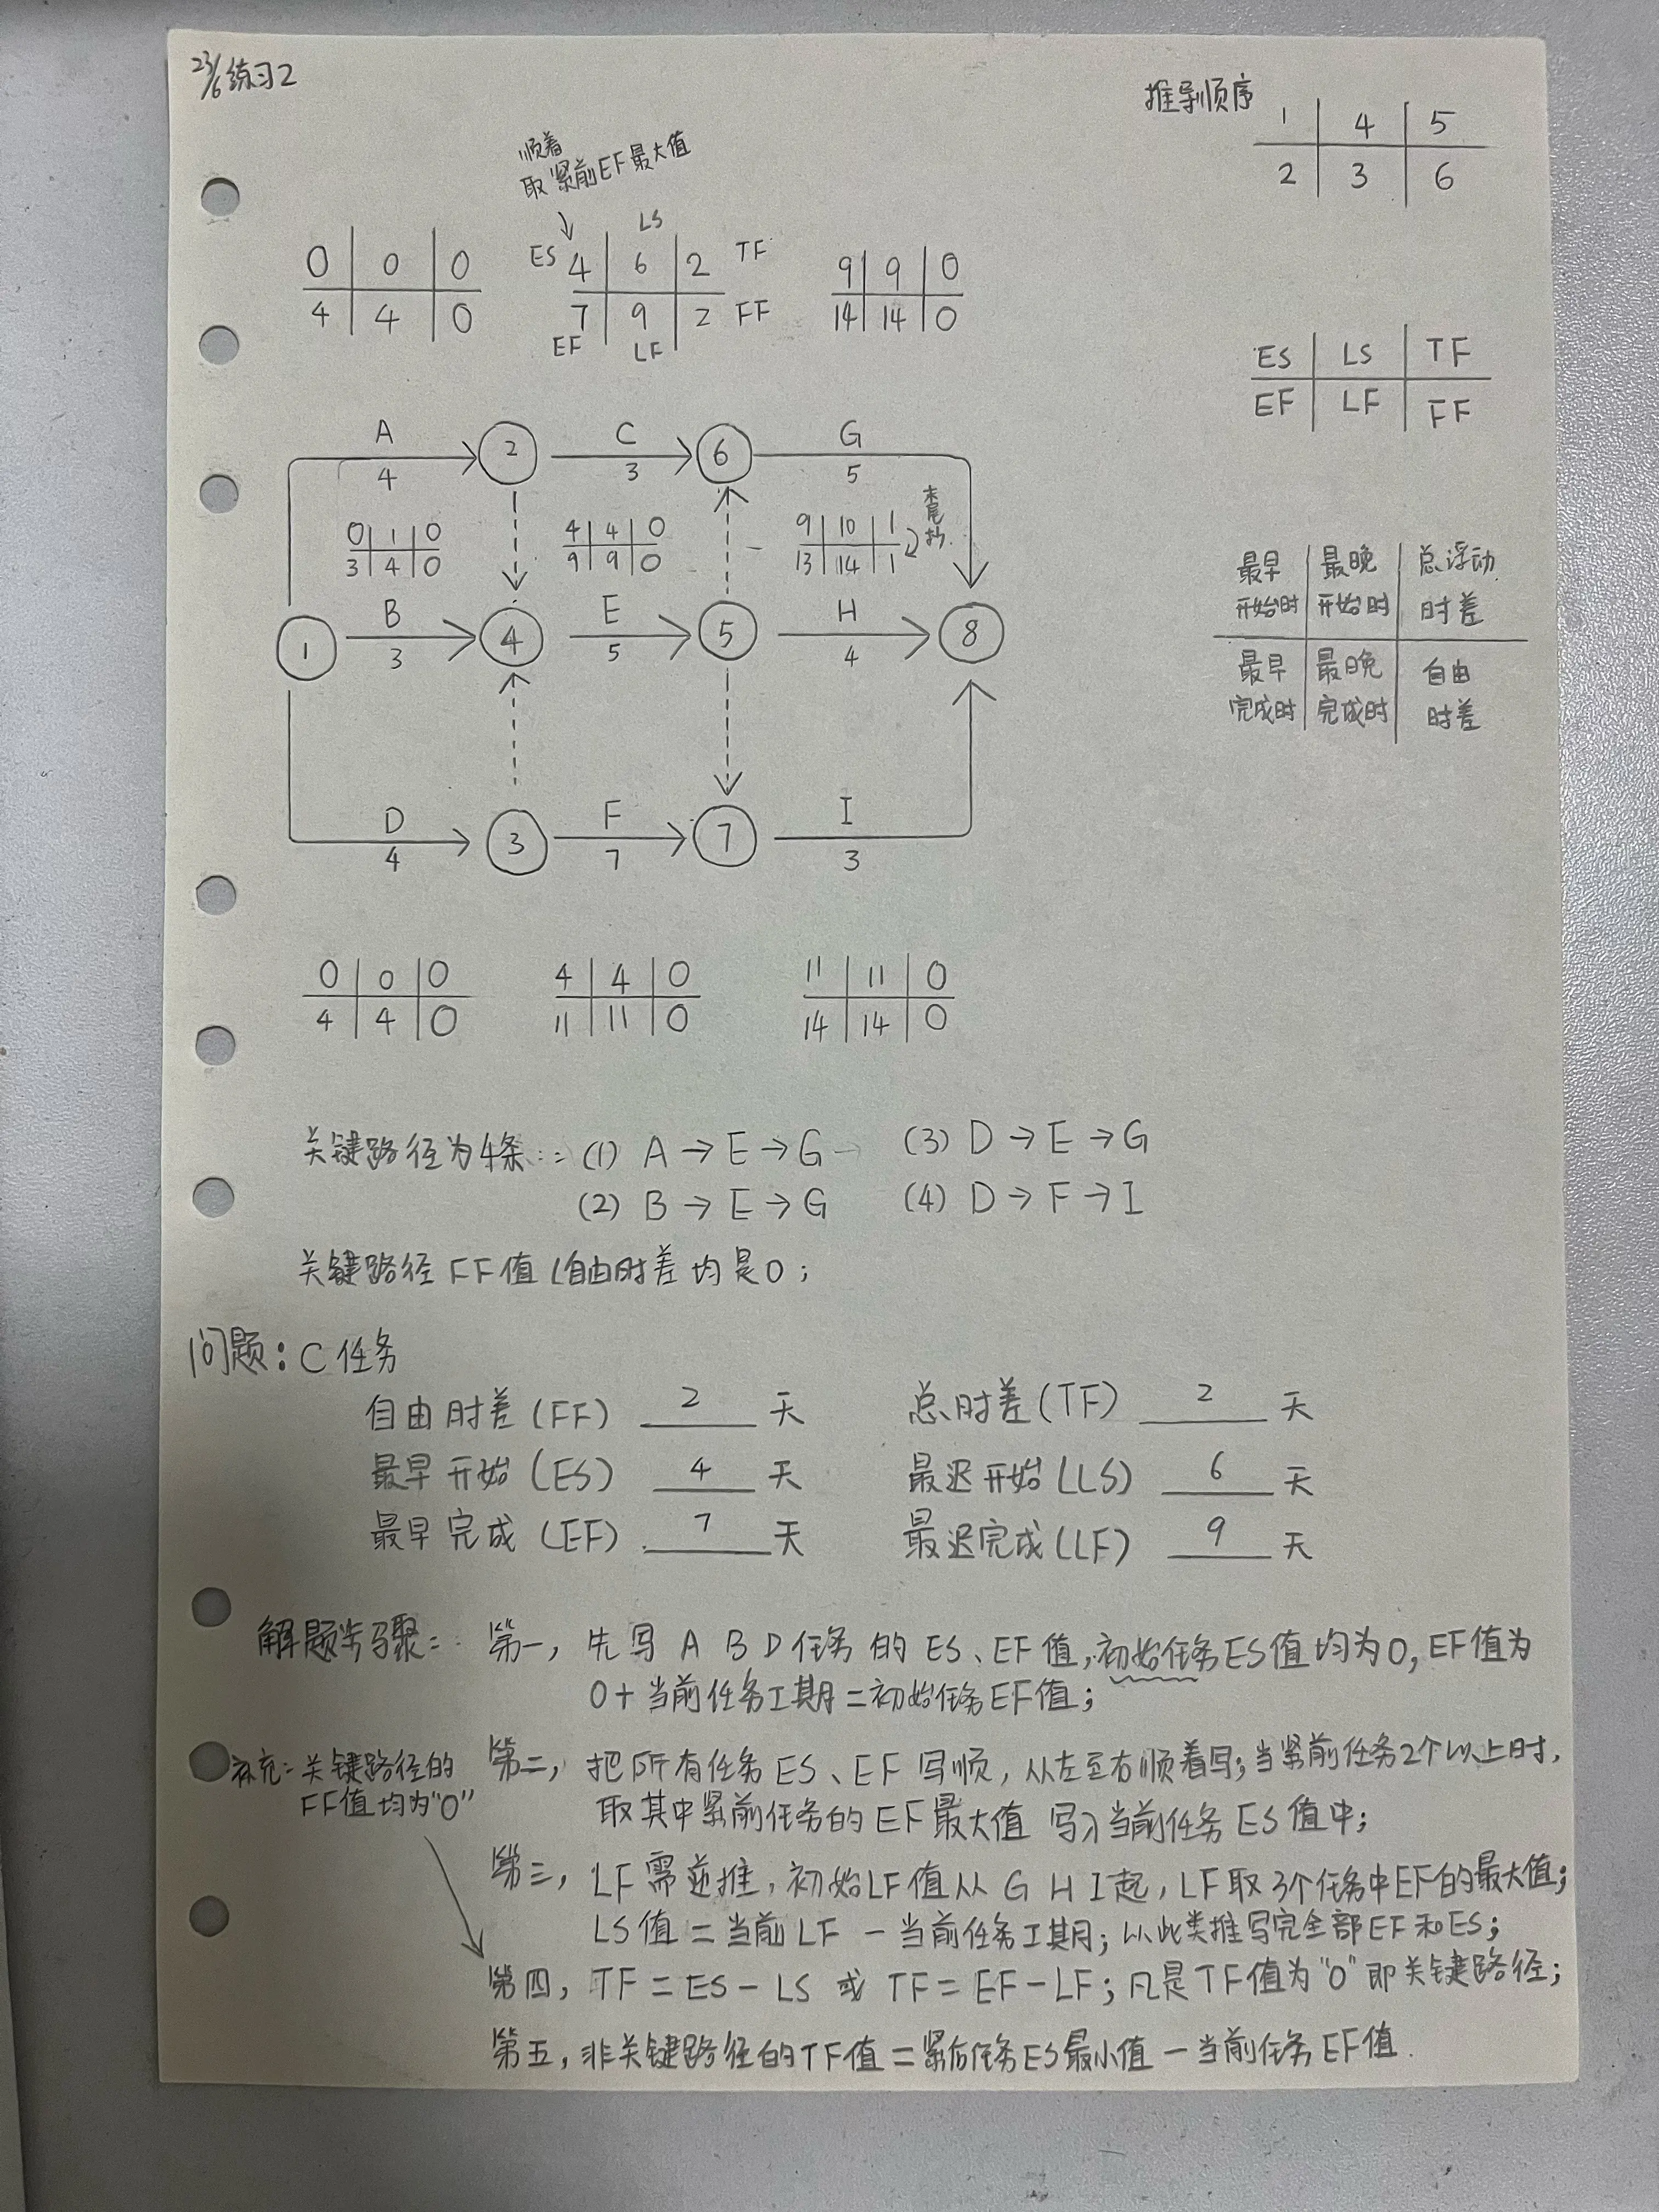 23/6 练习2
推导顺序
1 4 5
2 3 6
顺着
取紧前EF最大值
0 0 0
4 4 0
LS
ES 4 6 2 TF
7 9 2 FF
EF LF
9 9 0
14 14 0
ES LS TF
EF LF FF
A
4
2
C
3
6
G
5
0 1 0
3 4 0
4 4 0
9 9 0
9 10 1
13 14 1
末尾抄
最早开始时 最晚开始时 总浮动时差
最早完成时 最晚完成时 自由时差
1
B
3
4
E
5
5
H
4
8
D
4
3
F
7
7
I
3
0 0 0
4 4 0
4 4 0
11 11 0
11 11 0
14 14 0
关键路径为4条:: (1) A → E → G (3) D → E → G
(2) B → E → G (4) D → F → I
关键路径FF值(自由时差均是0;
问题: C任务
自由时差(FF) 2 天 总时差(TF) 2 天
最早开始(ES) 4 天 最迟开始(LS) 6 天
最早完成(EF) 7 天 最迟完成(LF) 9 天
解题步骤: 第一, 先写 A B D 任务的 ES、EF值,初始任务ES值均为0, EF值为
0+当前任务工期=初始任务EF值;
第二, 把所有任务ES、EF写顺, 从左至右顺着写;当紧前任务2个以上时,
取其中紧前任务的EF最大值 写入当前任务ES值中;
补充: 关键路径的
FF值均为"0"
第三, LF需逆推, 初始LF值从 G H I起, LF取3个任务中EF的最大值;
LS值=当前LF-当前任务工期; 以此类推写完全部EF和ES;
第四, TF=ES-LS 或 TF=EF-LF; 凡是TF值为"0"即关键路径;
第五, 非关键路径的TF值=紧后任务ES最小值-当前任务EF值.